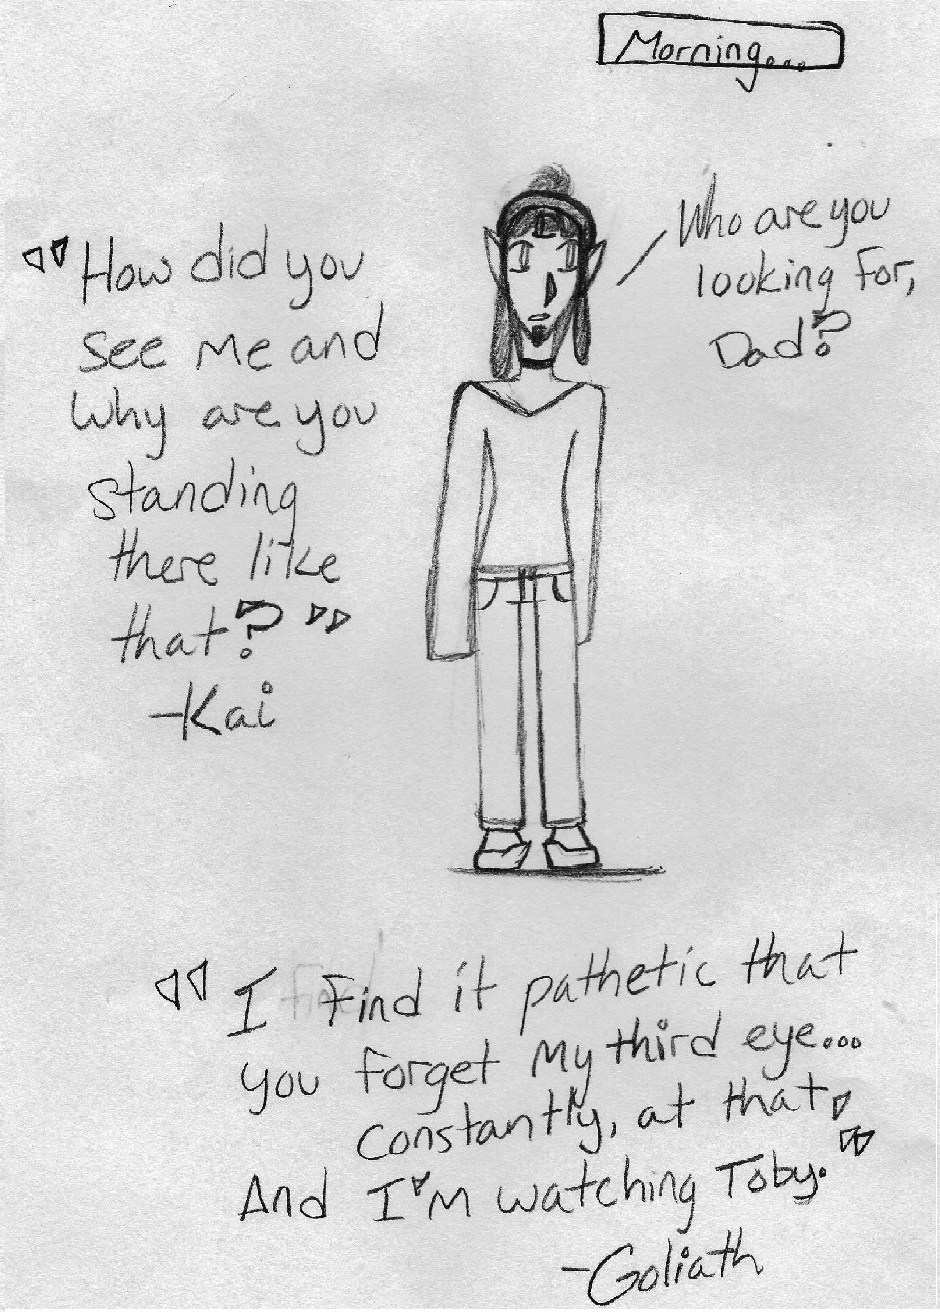 Morning...
Who are you
looking for,
Dad?
"How did you
see me and
why are you
standing
there like
that?"
-Kai
"I find it pathetic that
you forget my third eye...
constantly, at that,
And I'm watching Toby."
-Goliath